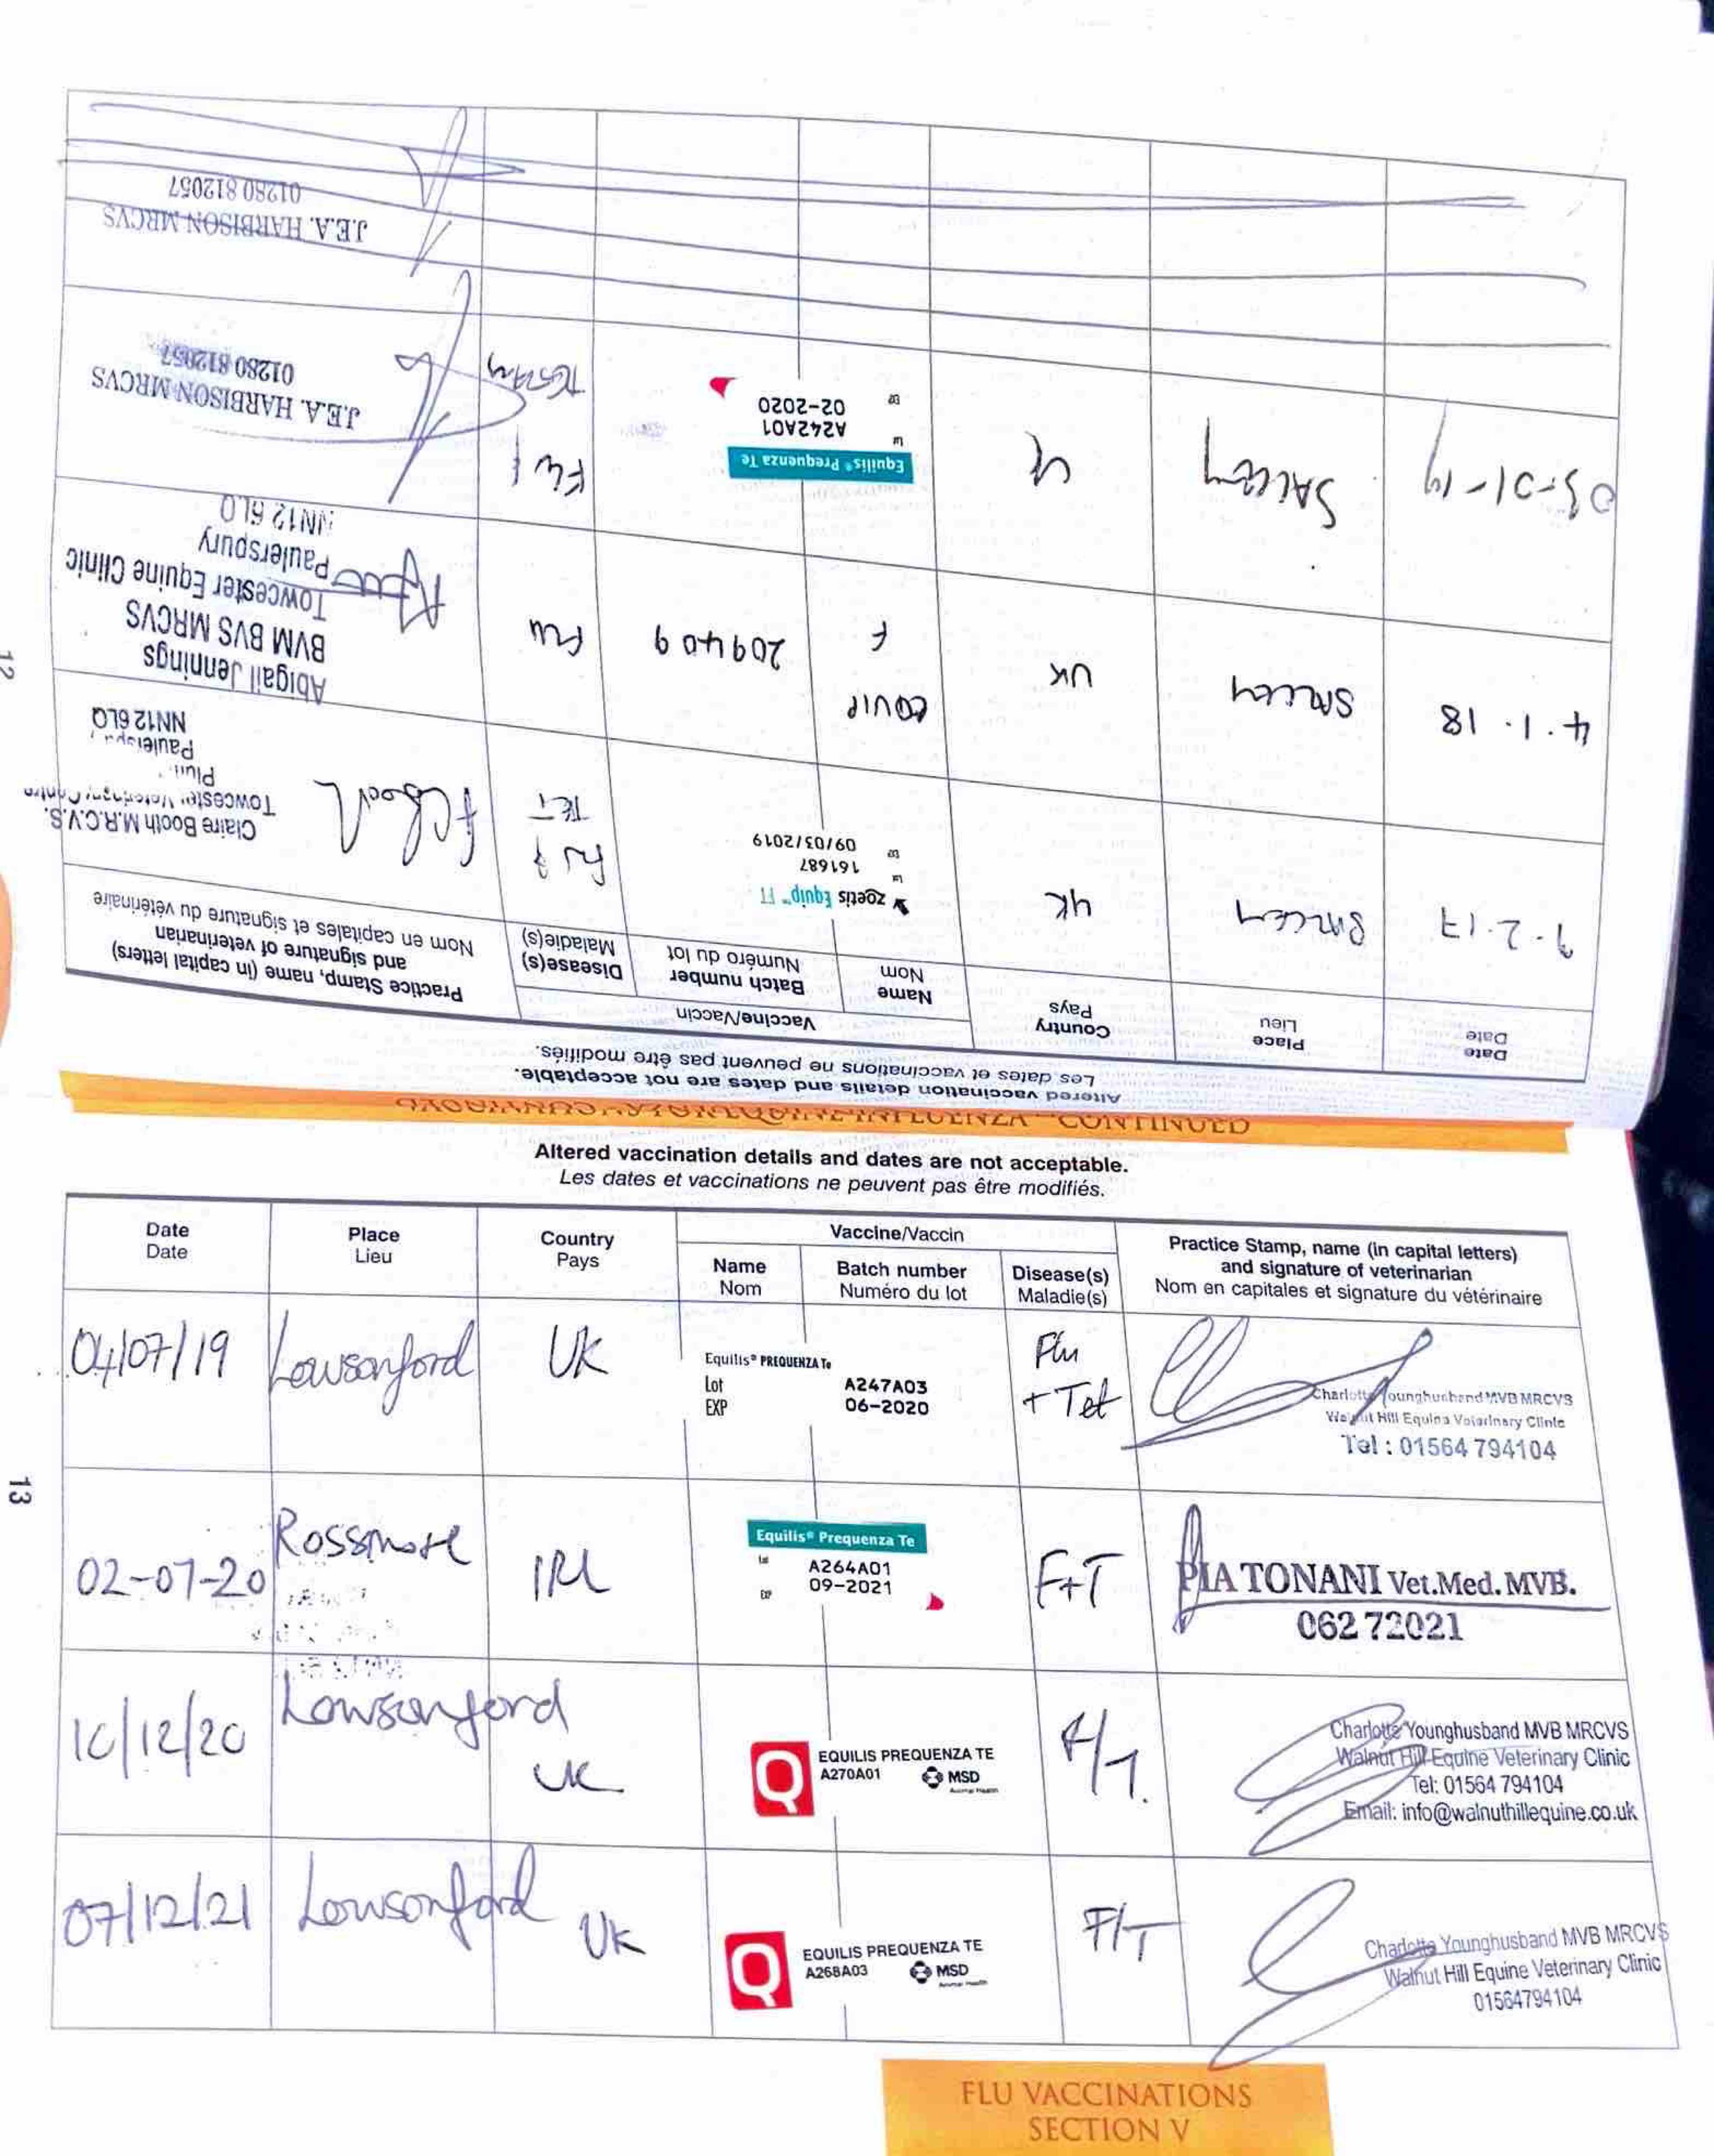 12
Altered vaccination details and dates are not acceptable.
Les dates et vaccinations ne peuvent pas être modifiés.
Date
Date
Place
Lieu
Country
Pays
Vaccine/Vaccin
Name
Nom
Batch number
Numéro du lot
Disease(s)
Maladie(s)
Practice Stamp, name (in capital letters)
and signature of veterinarian
Nom en capitales et signature du vétérinaire
9.2.17
UK
zoetis Equip™ FT
Lot 161687
EXP 09/03/2019
TET
Claire Booth M.R.C.V.S.
Towcester Veterinary Centre
Paulerspury
NN12 6LQ
4.1.18
UK
EQUIP
F
209409
FLU
Abigail Jennings
BVM BVS MRCVS
Towcester Equine Clinic
Paulerspury
NN12 6LQ
03-01-19
Equilis® Prequenza Te
Lot A242A01
EXP 02-2020
Flu &
J.E.A. HARBISON MRCVS
01280 812057
J.E.A. HARBISON MRCVS
01280 812057
EQUINE INFLUENZA CONTINUED
13
Altered vaccination details and dates are not acceptable.
Les dates et vaccinations ne peuvent pas être modifiés.
Date
Date
Place
Lieu
Country
Pays
Vaccine/Vaccin
Name
Nom
Batch number
Numéro du lot
Disease(s)
Maladie(s)
Practice Stamp, name (in capital letters)
and signature of veterinarian
Nom en capitales et signature du vétérinaire
04/07/19
Lowsonford
UK
Equilis® PREQUENZA Te
Lot A247A03
EXP 06-2020
Flu
+ Tet
Charlotte Younghusband MVB MRCVS
Walnut Hill Equine Veterinary Clinic
Tel: 01564 794104
02-07-20
Rossmore
IRL
Equilis® Prequenza Te
Lot A264A01
EXP 09-2021
F+T
PIA TONANI Vet.Med. MVB.
062 72021
10/12/20
Lowsonford
UK
EQUILIS PREQUENZA TE
A270A01 MSD
Animal Health
F/T.
Charlotte Younghusband MVB MRCVS
Walnut Hill Equine Veterinary Clinic
Tel: 01564 794104
Email: info@walnuthillequine.co.uk
07/12/21
Lowsonford
UK
EQUILIS PREQUENZA TE
A268A03 MSD
Animal Health
F/T
Charlotte Younghusband MVB MRCVS
Walnut Hill Equine Veterinary Clinic
01564794104
FLU VACCINATIONS
SECTION V